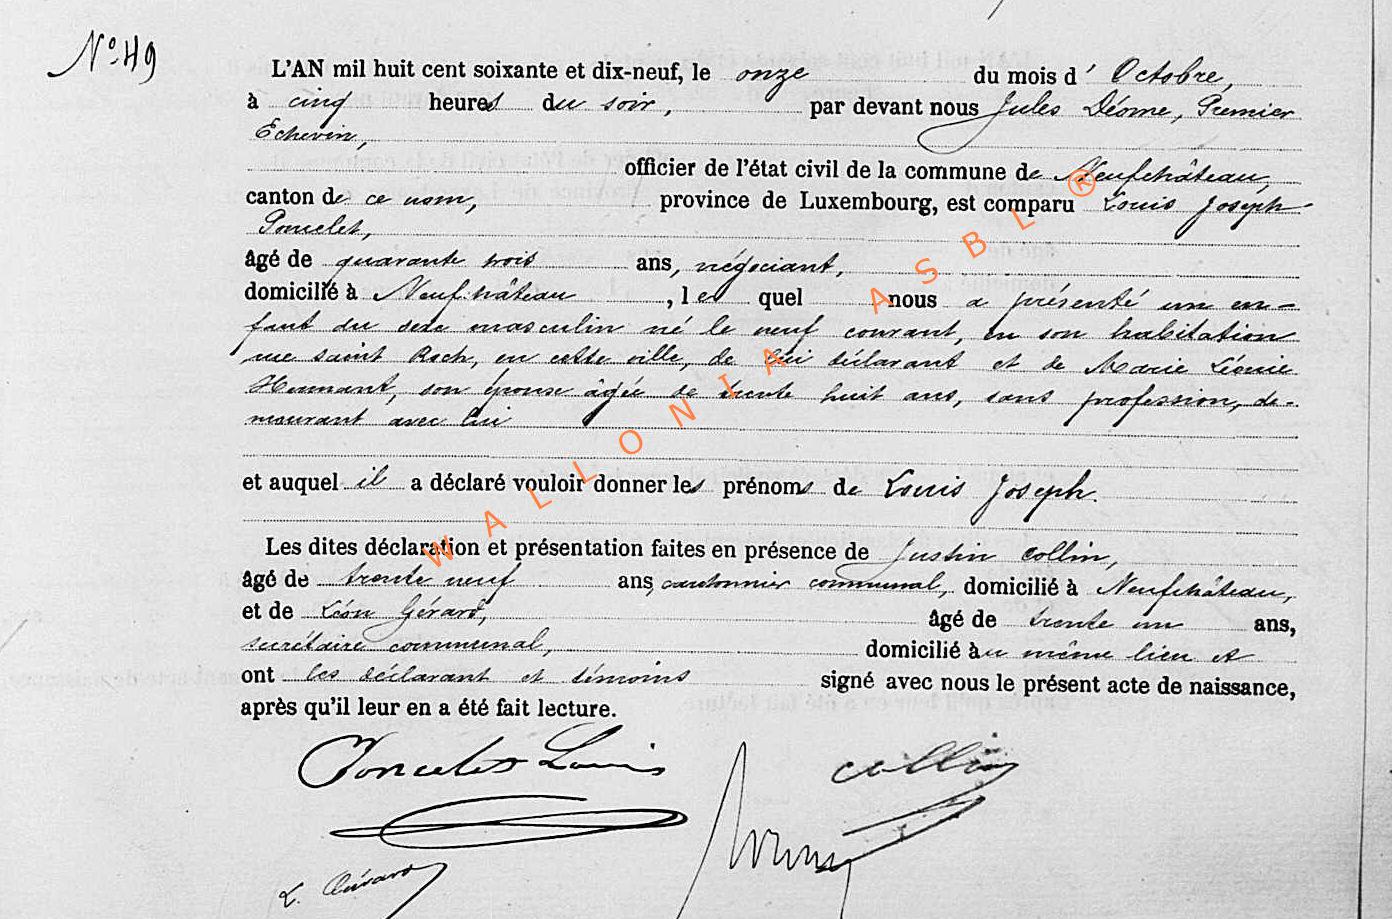 N° 49
L'AN mil huit cent soixante et dix-neuf, le onze du mois d' Octobre,
à cinq heures du soir, par devant nous Jules Déome, Premier
Echevin,
officier de l'état civil de la commune de Neufchâteau,
canton de ce nom, province de Luxembourg, est comparu Louis Joseph
Poncelet,
âgé de quarante trois ans, négociant,
domicilié à Neufchâteau, lequel nous a présenté un en-
fant du sexe masculin né le neuf courant, en son habitation
rue saint Roch, en cette ville, de lui déclarant et de Marie Léonie
son épouse âgée de trente huit ans, sans profession, de-
meurant avec lui
et auquel il a déclaré vouloir donner les prénoms de Louis Joseph.
Les dites déclaration et présentation faites en présence de Justin Collin,
âgé de trente neuf ans, cantonnier communal, domicilié à Neufchâteau,
et de Léon Gérard, âgé de trente un ans,
secrétaire communal, domicilié au même lieu et
ont les déclarant et témoins signé avec nous le présent acte de naissance,
après qu'il leur en a été fait lecture.
Poncelet Louis
Collin
L. Gérard
WALLONIA ASBL ®